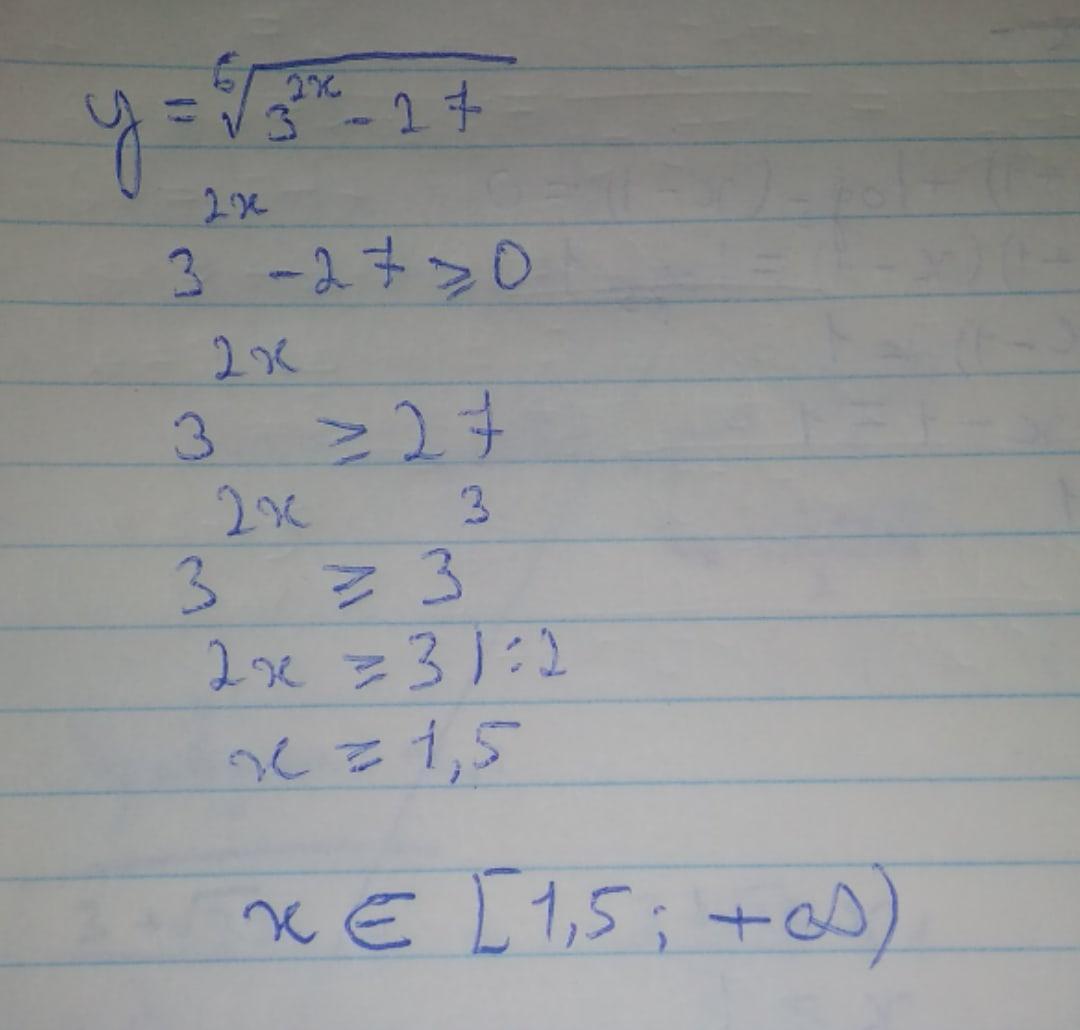 y = ⁶√(3^(2x) - 27)
3^(2x) - 27 ⩾ 0
3^(2x) ⩾ 27
3^(2x) ⩾ 3^3
2x ⩾ 3 | : 2
x ⩾ 1,5
x ∈ [1,5; +∞)